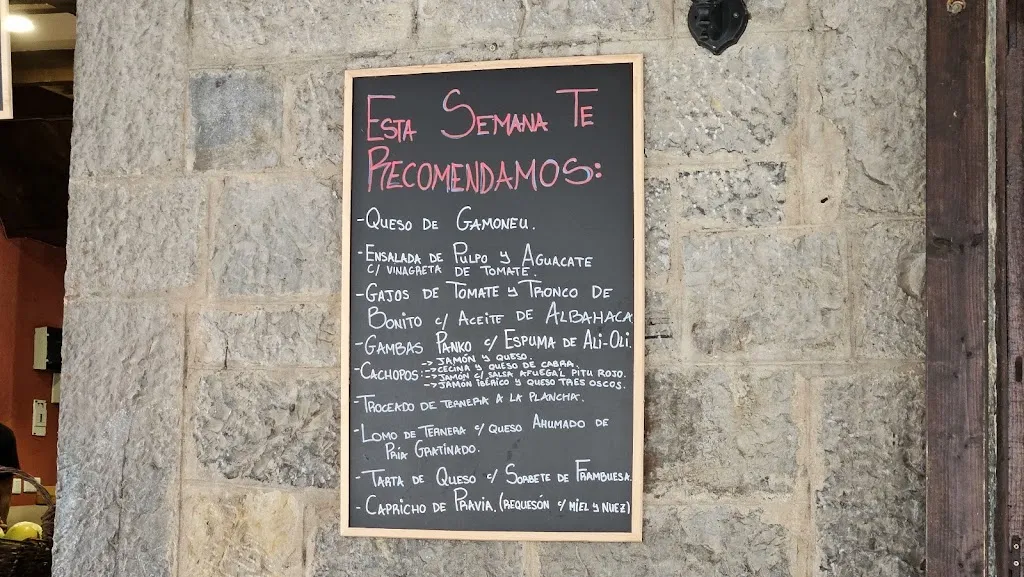 ESTA SEMANA TE
RECOMENDAMOS:
-QUESO DE GAMONEU.
-ENSALADA DE PULPO Y AGUACATE
C/ VINAGRETA DE TOMATE.
-GAJOS DE TOMATE Y TRONCO DE
BONITO C/ ACEITE DE ALBAHACA
-GAMBAS PANKO C/ ESPUMA DE ALI-OLI.
-CACHOPOS:→JAMÓN Y QUESO.
→CECINA Y QUESO DE CABRA.
→JAMÓN C/ SALSA AFUEGA'L PITU ROJO.
→JAMÓN IBÉRICO Y QUESO TRES OSCOS.
-TROCEADO DE TERNERA A LA PLANCHA.
-LOMO DE TERNERA C/ QUESO AHUMADO DE
PRÍA GRATINADO.
-TARTA DE QUESO C/ SORBETE DE FRAMBUESA.
-CAPRICHO DE PRAVIA. (REQUESÓN C/ MIEL Y NUEZ)